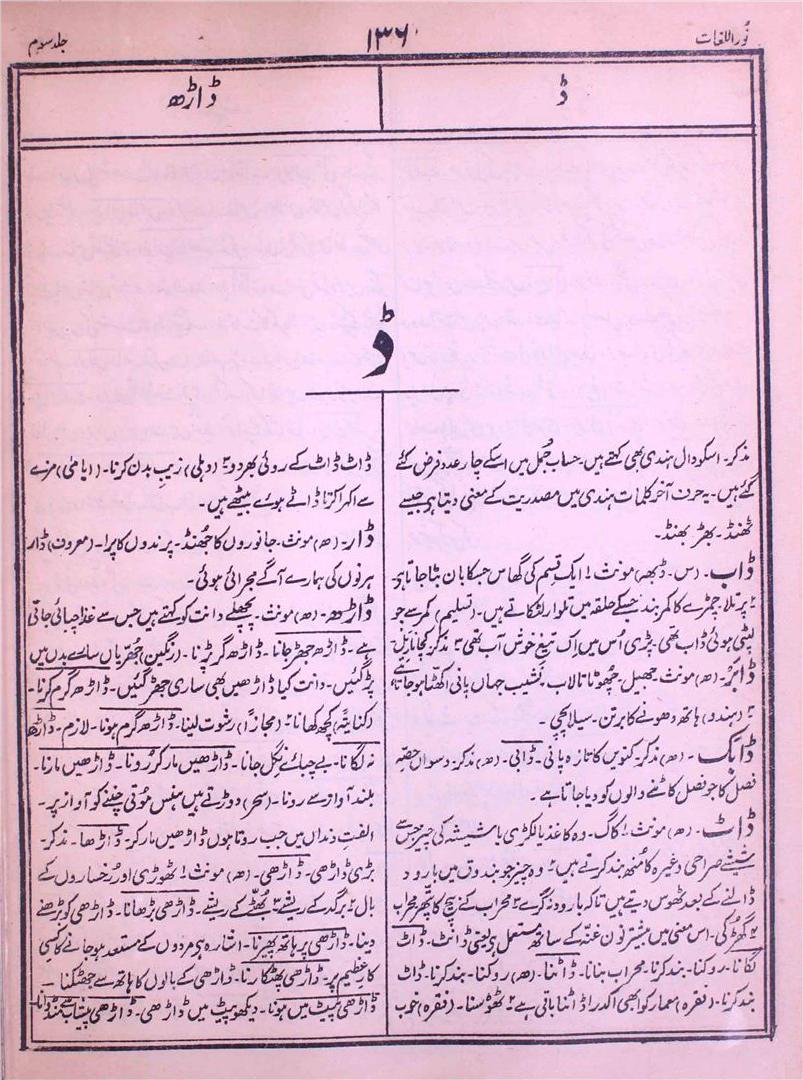 نُوراللغات
۱۳۶
جلد سوم
ڈ
ڈاڑھ
ڈ
مذکر۔ اسکو دال ہندی بھی کہتے ہیں۔ حساب جُمل میں اسکے چار عدد فرض کئے
گئے ہیں۔ یہ حرف آخر کلمات ہندی میں مصدریت کے معنی دیتا ہے جیسے
ٹھنڈ۔ بھڑ بھنڈ۔
ڈاب۔ (س۔ ڈبھ) مونث ۱ ایک قسم کی گھاس جسکا بان بٹا جاتا ہے
۲ پرتلا۔ چمڑے کا کمربند جسکے حلقہ میں تلوار لٹکاتے ہیں۔ (تسلیم) کمر سے جو
لپٹی ہوئی ڈاب تھی۔ پڑی اُس میں اِک تیغِ خوش آب تھی ۳ مذکر کچا ناریل
ڈابَر۔ (ھ) مونث۔ جھیل۔ چھوٹا تالاب۔ نشیب جہاں پانی اکھٹا ہو جاتا ہے
۲ (ہندو) ہاتھ دھونے کا برتن۔ سیلابچی۔
ڈابک۔ (ھ) مذکر۔ کنویں کا تازہ پانی۔ ڈابی۔ (ھ) مذکر۔ دسواں حصّہ
فصل کا جو فصل کاٹنے والوں کو دیا جاتا ہے۔
ڈاٹ۔ (ھ) مونث ۱ کاگ۔ وہ کاغذ یا لکڑی یا شیشہ کی چیز جس سے
شیشے صراحی وغیرہ کا مُنھ بند کرتے ہیں ۲ وہ چیز جو بندوق میں بارود
ڈالنے کے بعد ٹھوس دیتے ہیں تاکہ بارود نہ گرے ۳ محراب کے بیچ کا پتھر محراب
۴ گھُڑکی۔ اس معنی میں بیشتر نون غنّہ کے ساتھ مستعمل ہے یعنی ڈانٹ۔ ڈاٹ
لگانا۔ روکنا۔ بند کرنا۔ محراب بنانا۔ ڈاٹنا۔ (ھ) روکنا۔ بند کرنا۔ ڈاٹ
بند کرنا۔ (فقرہ) معمار کو ابھی اک در ڈاٹنا باقی ہے ۲ ٹھوسنا۔ (فقرہ) خوب
ڈاٹ ڈاٹ کے روئی بھر دو ۳ (دہلی) زیب بدن کرنا۔ (ایامیٰ) مزے
سے اکہرا کرتا ڈاٹے ہوے بیٹھے ہیں۔
ڈار۔ (ھ) مونث۔ جانوروں کا جھُنڈ۔ پرندوں کا پرا۔ (معروف) ڈار
ہرنوں کی ہمارے آگے مجرائی ہوئی۔
ڈاڑھ۔ (ھ) مونث۔ پچھلے دانت کو کہتے ہیں جس سے غذا چبائی جاتی
ہے۔ ڈاڑھ جھڑ جانا۔ ڈاڑھ گر پڑنا۔ (رنگین) جھُرّیاں سارے بدن میں
پڑ گئیں۔ دانت کیا ڈاڑھیں بھی ساری جھڑ گئیں۔ ڈاڑھ گرم کرنا۔
(کنایۃً) کچھ کھانا ۲ (مجازاً) رشوت لینا۔ ڈاڑھ گرم ہونا۔ لازم۔ ڈاڑھ
نہ لگانا۔ بے چبائے نگل جانا۔ ڈاڑھیں مار کر رونا۔ ڈاڑھیں مارنا۔
بلند آواز سے رونا۔ (سحر) دوڑتے ہیں ہنس مُوتی چننے کو آواز پر۔
الفتِ دنداں میں جب روتا ہوں ڈاڑھیں مار کر۔ ڈاڑھا۔ مذکر۔
بڑی ڈاڑھی۔ ڈاڑھی۔ (ھ) مونث ۱ ٹھوڑی اور رُخساروں کے
بال ۲ برگد کے ریشے ۳ بھُٹّے کے ریشے۔ ڈاڑھی بڑھانا۔ ڈاڑھی کو بڑھنے
دینا۔ ڈاڑھی پر ہاتھ پھیرنا۔ اشارہ ہے مردوں کے مستعد ہو جانے کا کسی
کارِ عظیم پر۔ ڈاڑھی پھٹکارنا۔ ڈاڑھی کے بالوں کا ہاتھ سے جھٹکنا۔
ڈاڑھی پیٹ میں ہونا۔ دیکھو پیٹ میں ڈاڑھی۔ ڈاڑھی پیشاب سے مُنڈوانا